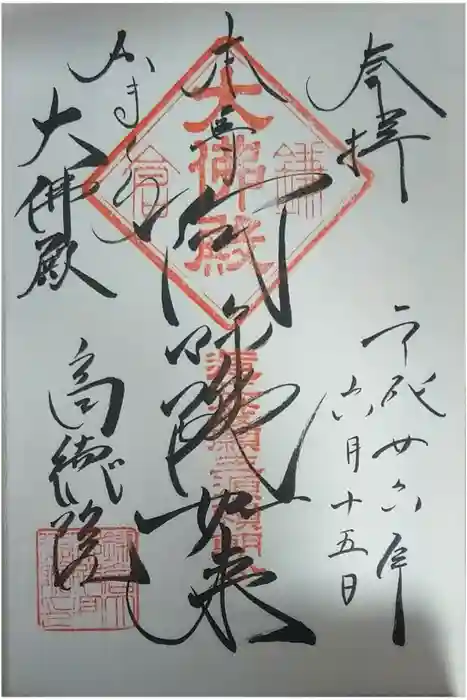 奉拝
平成廿六年
六月十五日
本尊
阿弥陀如来
かまくら
大佛殿
高徳院
大佛殿
鎌倉